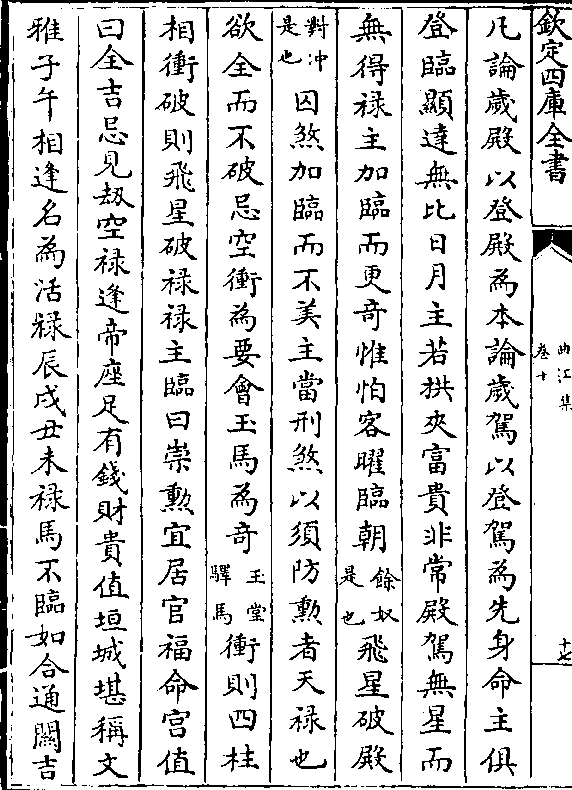 欽定四庫全書
曲江集
卷十
十七
凡論歲殿以登殿為本論歲駕以登駕為先身命主俱
登臨顯達無比日月主若拱夾富貴非常殿駕無星而
無得祿主加臨而更奇惟怕客曜臨朝餘奴是也飛星破殿
對沖是也因煞加臨而不美主當刑煞以須防勲者天祿也
欲全而不破忌空衝為要會玉馬為奇玉堂驛馬衝則四柱
相衝破則飛星破祿祿主臨曰崇勲宜居官福命宫值
曰全吉忌見刼空祿逢帝座足有錢財貴值垣城堪稱文
雅子午相逢名為活祿辰戌丑未祿馬不臨如合通關吉